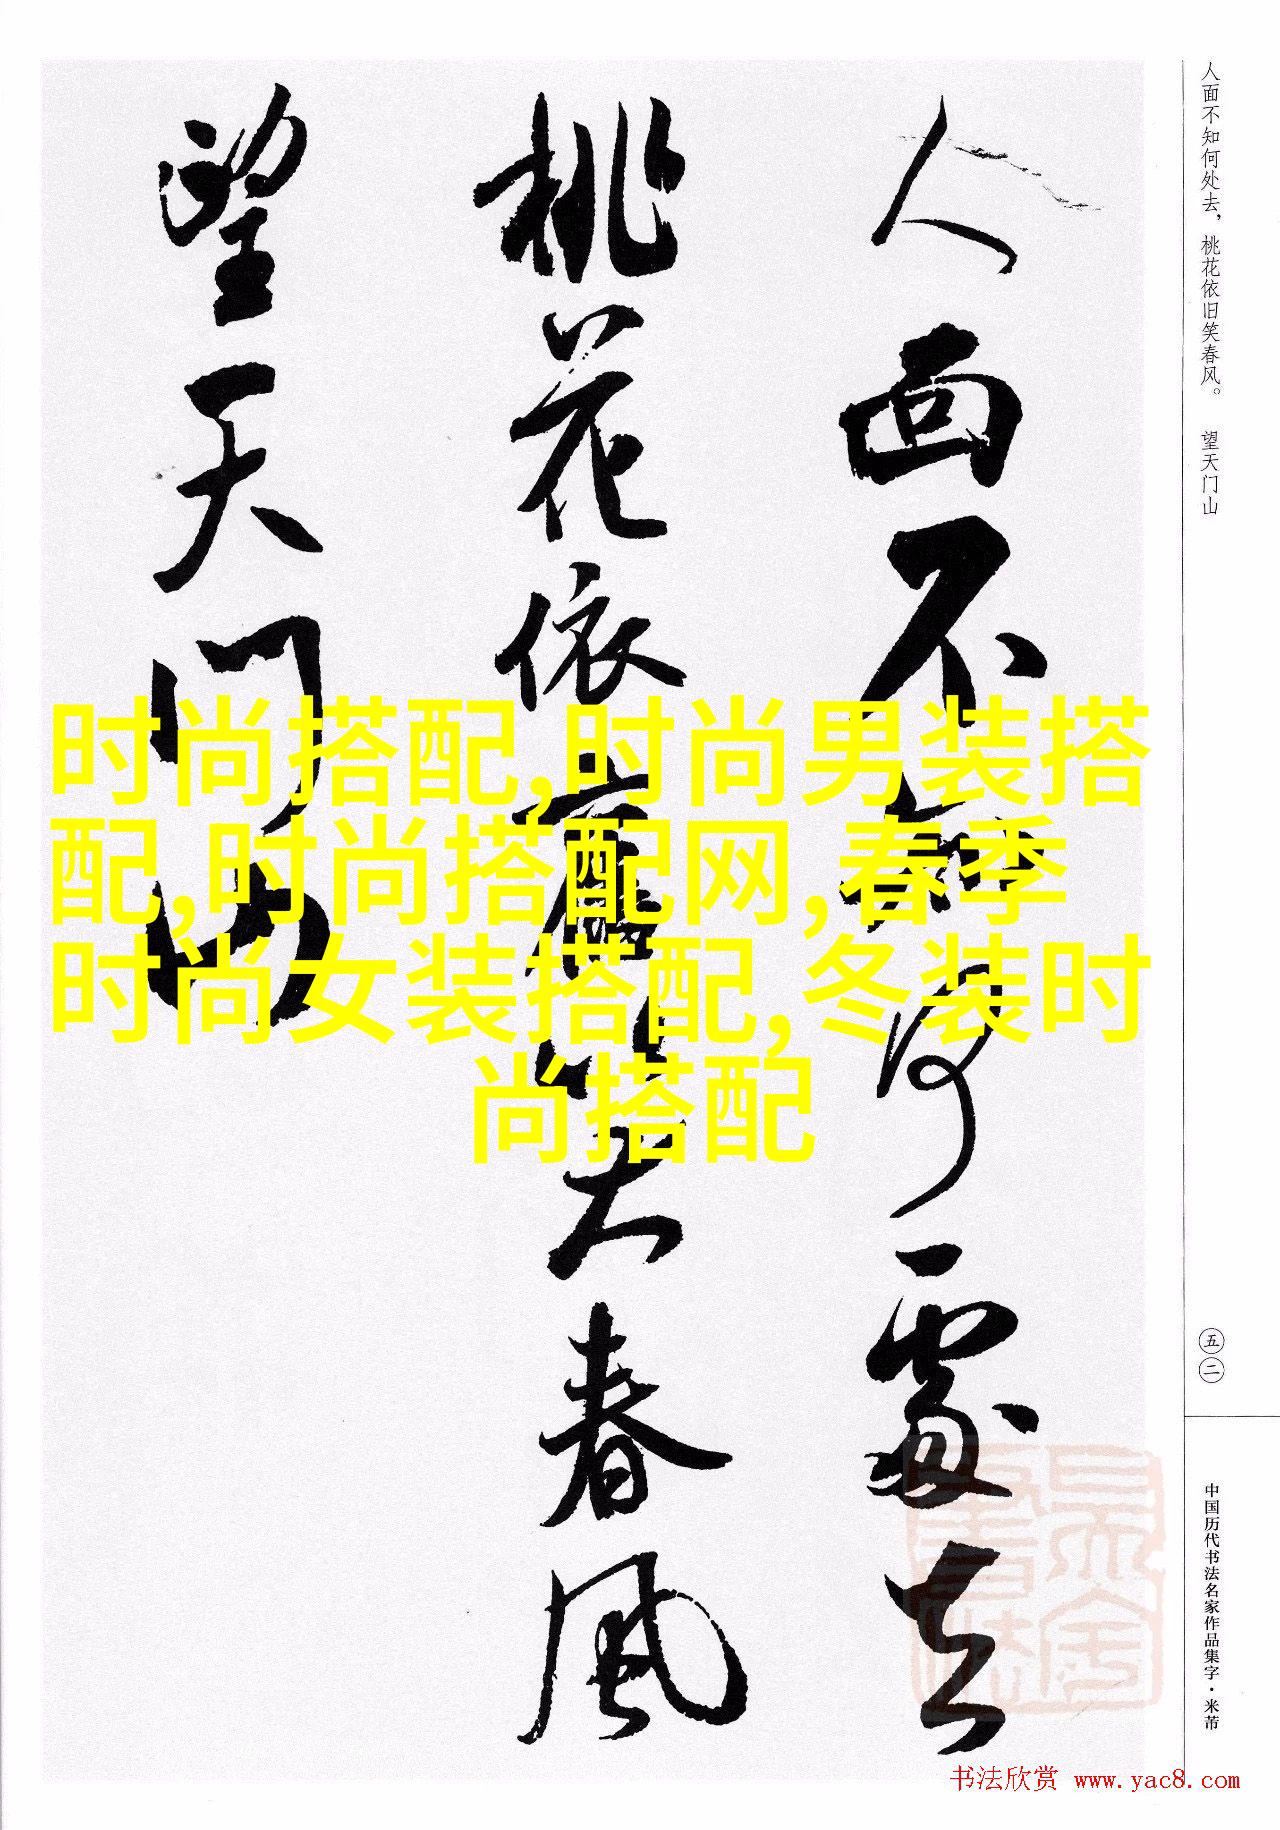 人面不知何處去
桃花依舊笑春風
望天门山
人面不知何处去，桃花依旧笑春风。 望天门山
时尚搭配,时尚男装搭
配,时尚搭配网,春季
时尚女装搭配,冬装时
尚搭配
五二
中国历代书法名家作品集字·米芾
书法欣赏 www.yac8.com